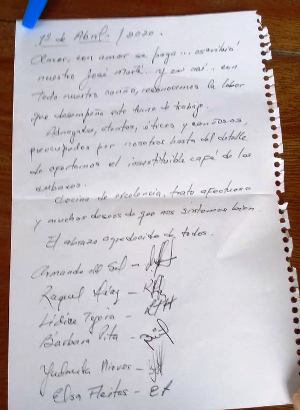 1º de Abril / 2020.
Amor, con amor se paga... escribió
nuestro José Martí... y en así... con
todo nuestro corazón, reconocemos la labor
que desempeña este turno de trabajo.
Abnegados, atentos, éticos y
preocupados por nosotros hasta del detalle
de aportarnos el insustituible café de los
cubanos.
Cocina de excelencia, trato afectuoso
y muchos deseos de que nos sintamos bien.
El abrazo agradecido de todos.
Armando del Sol -
Raquel Díaz -
Lidice Tapia -
Bárbara Pita -
Yudmila Nieves -
Elsa Fleitas - EF